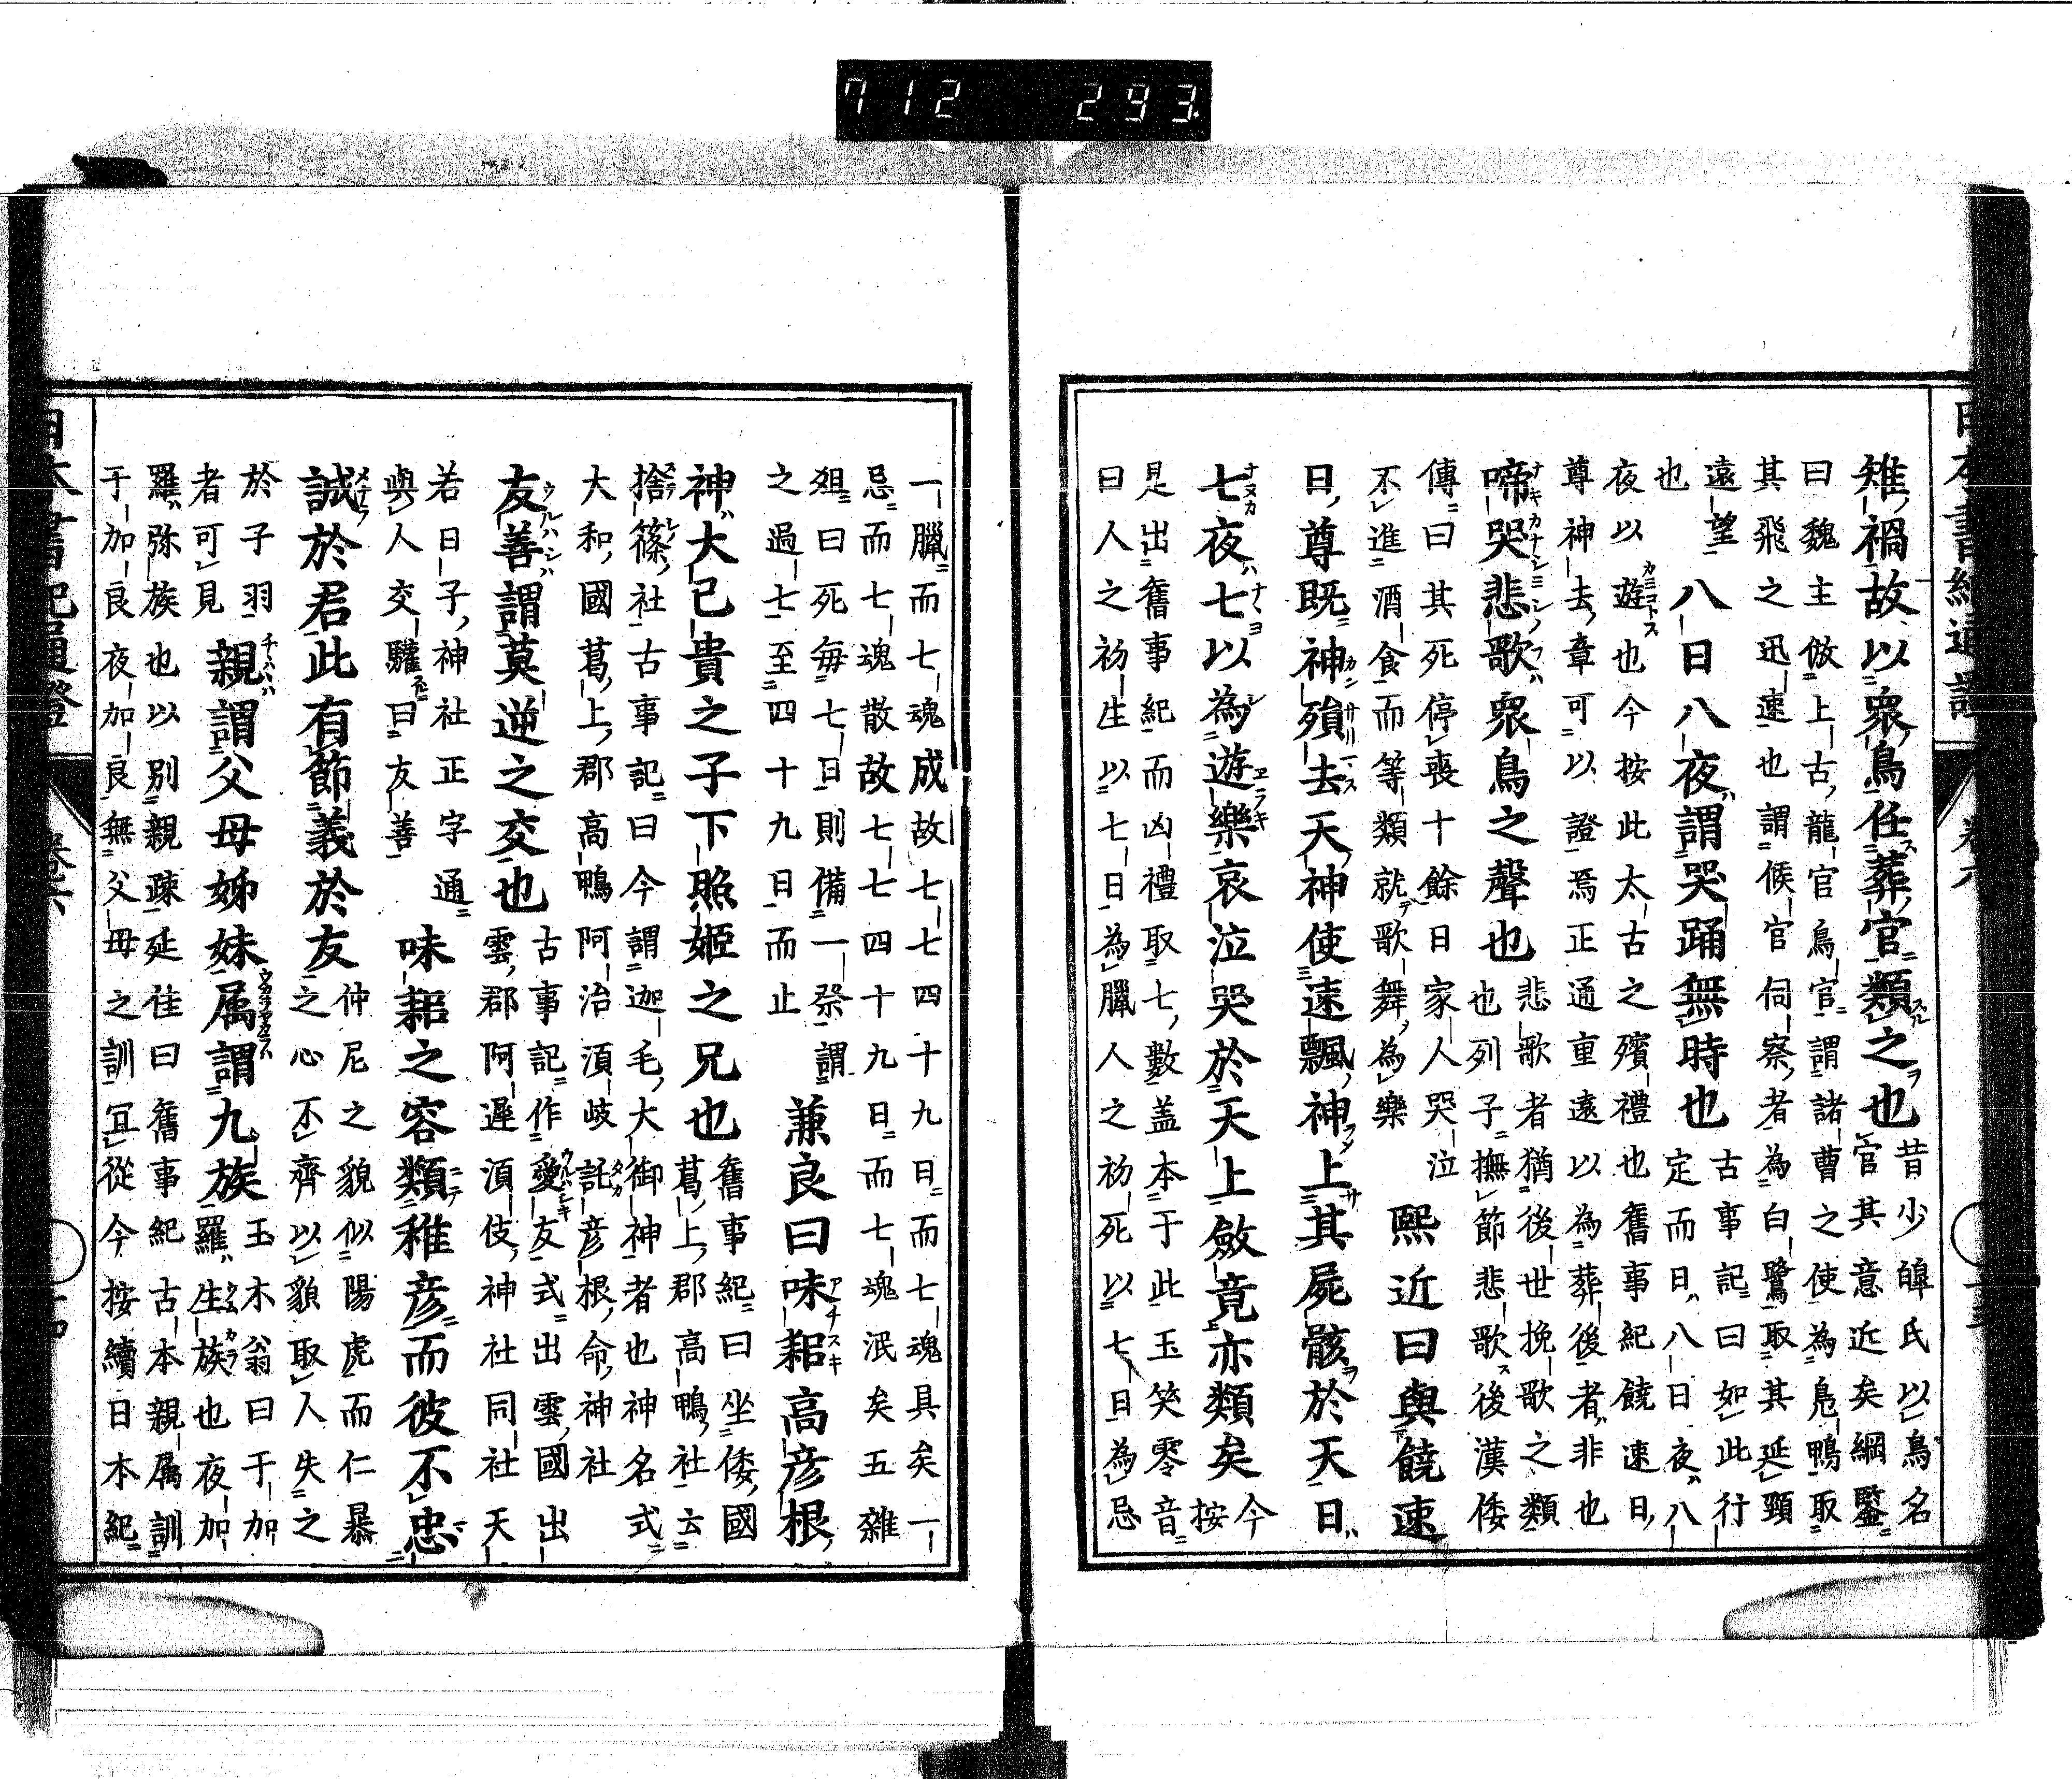 日本書紀通證 卷六
雉禍故以眾鳥任葬官類之也
昔少皞氏以鳥名
官其意近矣綱鑒
曰魏主倣上古龍官鳥官謂諸曹之使為鳬鴨取
其飛之迅速也謂候官伺察者為白鷺取其延頸
遠望
也
八日八夜謂哭踊無時也
古事記曰如此行
定而日八日夜八
夜以遊也今按此太古之殯禮也舊事紀饒速日
尊神去章可以證焉正通重遠以為葬後者非也
啼哭悲歌眾鳥之聲也
悲歌者猶後世挽歌之類
也列子撫節悲歌後漢倭
傳曰其死停喪十餘日家人哭泣
不進酒食而等類就歌舞為樂
熙近曰與饒速
日尊既神殞去天神使速飄神上其屍骸於天日
七夜七以為遊樂哀泣哭於天上斂竟亦類矣
今
按
是出舊事紀而凶禮取七數盖本于此玉笑零音
曰人之初生以七日為臘人之初死以七日為忌
一臘而七魂成故七七四十九日而七魂具矣一
忌而七魂散故七七四十九日而七魂泯矣五雜
爼曰死毎七日則備一祭謂
之過七至四十九日而止
兼良曰味耜高彦根
神大己貴之子下照姬之兄也
舊事紀曰坐倭國
葛上郡高鴨社云
捨篠社古事記曰今謂迦毛大御神者也神名式
大和國葛上郡高鴨阿治湏岐託彦根命神社
友善謂莫逆之交也
古事記作愛友式出雲國出
雲郡阿遲湏伎神社同社天
若日子神社正字通
與人交驩曰友善
味耜之容類稚彦而彼不忠
誠於君此有節義於友
仲尼之貌似陽虎而仁暴
之心不齊以貌取人失之
於子羽
者可見
親謂父母姊妹属謂九族
玉木翁曰于加
羅生族也夜加
羅弥族也以別親疎延佳曰舊事紀古本親属訓
于加良夜加良無父母之訓冝從今按續日本紀
日本書紀通證 卷六
712 293